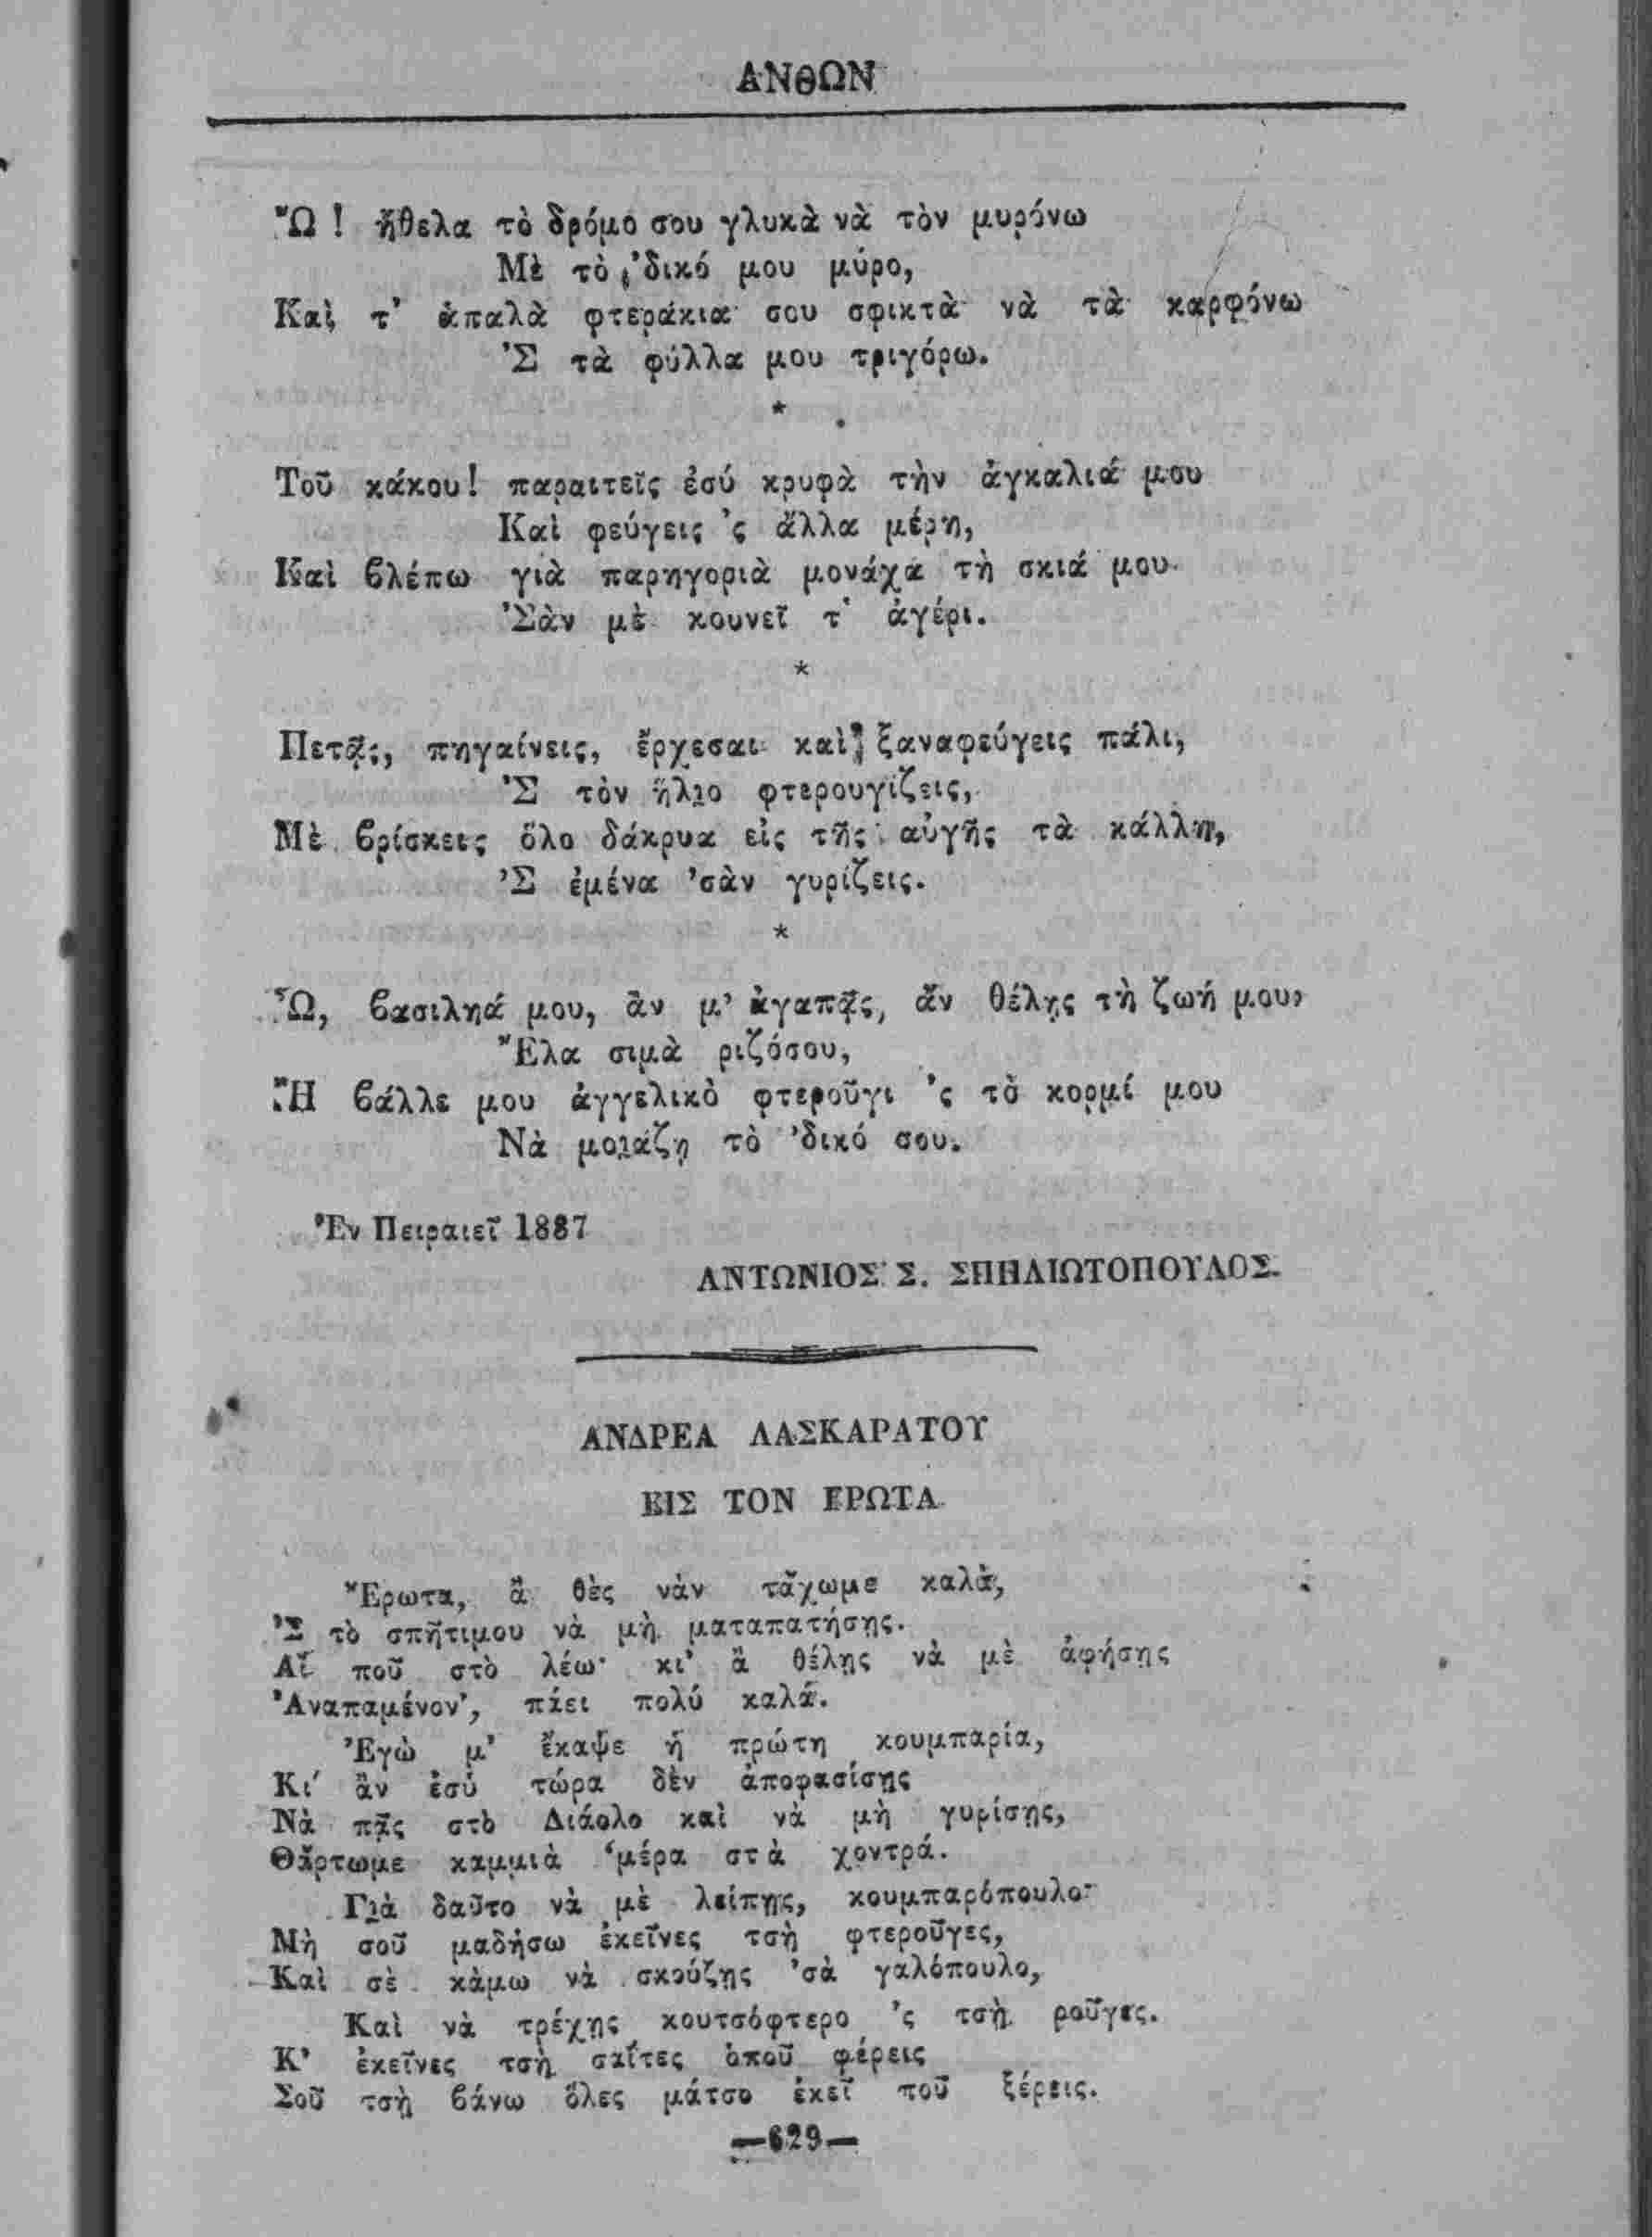 ΑΝΘΩΝ
Ὢ ! ἤθελα τὸ δρόμο σου γλυκὰ νὰ τὸν μυρόνω
Μὲ τὸ ’δικό μου μύρο,
Καὶ τ’ ἁπαλὰ φτεράκια σου σφικτὰ νὰ τὰ καρφόνω
’Σ τὰ φύλλα μου τριγόρω.
*
Τοῦ κάκου! παραιτεῖς ἐσύ κρυφὰ τὴν ἀγκαλιά μου
Καὶ φεύγεις ’ς ἄλλα μέρη,
Καὶ βλέπω γιὰ παρηγοριὰ μονάχα τὴ σκιά μου
’Σὰν μὲ κουνεῖ τ’ ἀγέρι.
*
Πετᾷς, πηγαίνεις, ἔρχεσαι καὶ ξαναφεύγεις πάλι,
’Σ τὸν ἥλιο φτερουγίζεις,
Μὲ βρίσκεις ὅλο δάκρυα εἰς τῆς αὐγῆς τὰ κάλλη,
’Σ ἐμένα ’σὰν γυρίζεις.
*
Ὦ, βασιληά μου, ἂν μ’ ἀγαπᾷς, ἄν θέλῃς τὴ ζωή μου,
Ἔλα σιμὰ ριζόσου,
Ἢ βάλλε μου ἀγγελικὸ φτεροῦγι ’ς τὸ κορμί μου
Νὰ μοιάζῃ τὸ ’δικό σου.
Ἐν Πειραιεῖ 1887
ΑΝΤΩΝΙΟΣ Σ. ΣΠΗΛΙΩΤΟΠΟΥΛΟΣ.
ΑΝΔΡΕΑ ΛΑΣΚΑΡΑΤΟΥ
ΕΙΣ ΤΟΝ ΕΡΩΤΑ
Ἔρωτα, ἂ θὲς νὰν τἄχωμε καλὰ,
’Σ τὸ σπῆτιμου νὰ μὴ ματαπατήσῃς.
Αἶ ποῦ στὸ λέω· κι’ ἂ θέλῃς νὰ μὲ ἀφήσῃς
Ἀναπαμένον’, πάει πολύ καλά.
Ἐγὼ μ’ ἔκαψε ἡ πρώτη κουμπαρία,
Κι’ ἂν ἐσὺ τώρα δὲν ἀποφασίσῃς
Νὰ πᾷς στὸ Διάολο καὶ νὰ μὴ γυρίσῃς,
Θἄρτωμε καμμιὰ ‘μέρα στὰ χοντρά.
Γιὰ δαῦτο νὰ μὲ λείπῃς, κουμπαρόπουλο·
Μὴ σοῦ μαδήσω ἐκεῖνες τσὴ φτεροῦγες,
Καὶ σὲ κὰμω νὰ σκούζῃς ’σὰ γαλόπουλο,
Καὶ νὰ τρέχῃς κουτσόφτερο ’ς τσὴ ροῦγες.
Κ’ ἐκεῖνες τσὴ σαΐτες ὁποῦ φέρεις
Σοῦ τσὴ βάνω ὅλες μάτσο ἐκεῖ ποῦ ξέρεις.
—629—